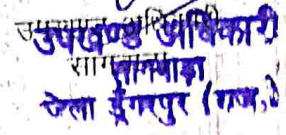 उपखण्ड अधिकारी
सागवाड़ा
जिला डूंगरपुर (राज.)